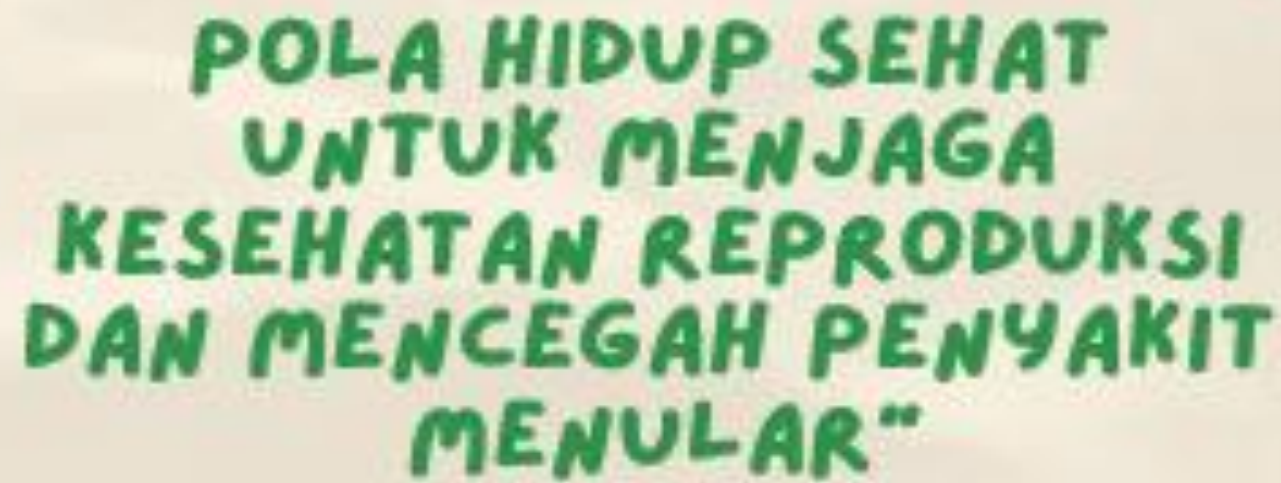 POLA HIDUP SEHAT
UNTUK MENJAGA
KESEHATAN REPRODUKSI
DAN MENCEGAH PENYAKIT
MENULAR"